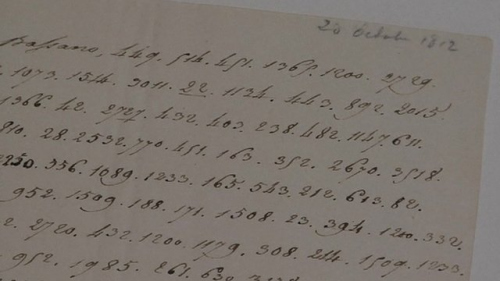 20 Octob 1812
Bassano, 449. 514. 451. 1365. 1200. 2729.
1073. 1514. 3011. 22. 1134. 443. 892. 2015.
1366. 42. 2727. 432. 403. 238. 482. 1147. 611.
910. 28. 2532. 770. 451. 163. 352. 2670. 3518.
2250. 356. 1089. 1233. 165. 543. 212. 613. 82.
952. 1509. 188. 171. 1508. 23. 394. 1200. 332.
2. 2720. 432. 1200. 1179. 308. 214. 1509. 1233.
952. 1985. 261. 630.